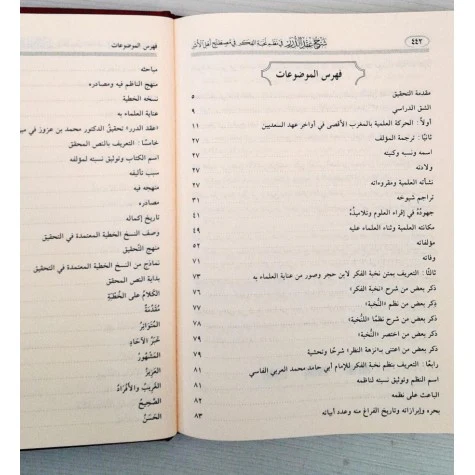 ٤٤٢
شرح عقد الدرر في نظم نخبة الفكر في مصطلح أهل الأثر
فهرس الموضوعات
مقدمة التحقيق ٥
الشق الدراسي ٩
أولاً: الحركة العلمية بالمغرب الأقصى في أواخر عهد السعديين ١١
ثانيًا: ترجمة المؤلف ٢٧
اسمه ونسبه وكنيته ٢٧
ولادته ٢٧
نشأته العلمية ومقروءاته ٢٧
تراجم شيوخه ٣١
جهودُهُ في إقراء العلوم وتلاميذُهُ ٤١
مكانته العلمية وثناء العلماء عليه ٤٩
مؤلفاته ٥٢
وفاته ٧١
ثالثًا: التعريف بمتن نخبة الفكر لابن حجر وصور من عناية العلماء به ٧٣
ذكر بعض من شرح «نخبة الفكر» ٧٦
ذكر بعض من نظم «النُّخبة» ٧٧
ذكر بعض من شرح نظمًا «للنُّخبة» ٧٨
ذكر بعض من اختصر «النُّخبة» ٧٩
ذكر بعض من اعتنى بـ«نزهة النظر» شرحًا وتحشية ٧٩
رابعًا: التعريف بنظم نخبة الفكر للإمام أبي حامد محمد العربي الفاسي ٨١
اسم النظم وتوثيق نسبته لناظمه ٨١
الباعث على نظمه ٨٢
بحره وإبرازاته وتاريخ الفراغ منه وعدد أبياته ٨٣
فهرس الموضوعات
مباحثه
منهج الناظم فيه ومصادره
نسخه الخطية
عناية العلماء به
«عقد الدرر» تحقيق الدكتور محمد بن عزوز في
خامسًا: التعريف بالنص المحقق
اسم الكتاب وتوثيق نسبته لمؤلفه
سبب تأليفه
منهجه فيه
مصادره
تاريخ إكماله
وصف النسخ الخطية المعتمدة في التحقيق
منهج التَّحقيق
نماذج من النسخ الخطية المعتمدة في التحقيق
بداية النص المحقق
الكَلَامُ على الخُطْبَةِ
مُقَدِّمَةٌ
المُتَوَاتِرُ
خَبَرُ الآحَادِ
المَشْهُورُ
العَزِيزُ
الغَرِيبُ وَالأَفْرَادُ
الصَّحِيحُ
الحَسَنُ